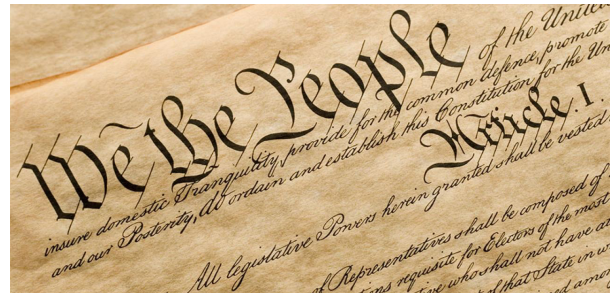 We the People of the United
insure domestic Tranquility, provide for the common defence, promote
and our Posterity, do ordain and establish this Constitution for the Un
Article. I.
All legislative Powers herein granted shall be vested
of Representatives shall be composed of
tions requisite for Electors of the most
who shall not have at
of that State in w
among